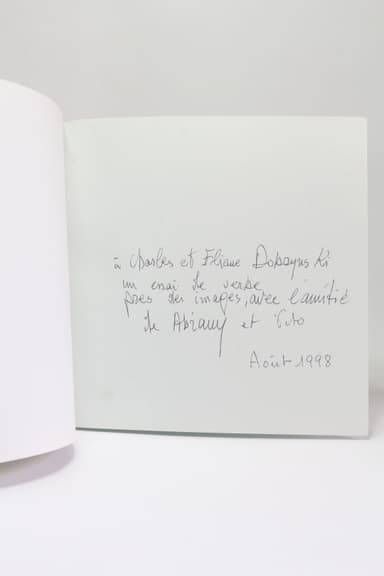 à Charles et Eliane Dobzynski
un essai de verbe
près des images, avec l'amitié
de et
Août 1998